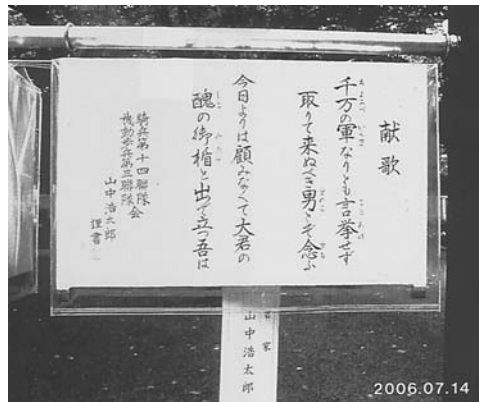 献歌
千万の軍なりとも言挙せず
取りて来ぬべき勇とぞ念ふ
今日よりは顧みなくて大君の
醜の御楯と出で立つ吾は
騎兵第十四聯隊会
機動歩兵第三聯隊
山中浩太郎
謹書
書家
山中浩太郎
2006.07.14